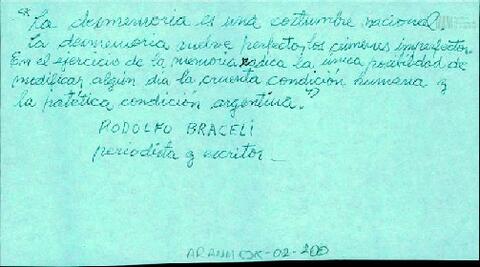 "La desmemoria es una costumbre nacional
La desmemoria vuelve perfectos los crímenes imperfectos.
En el ejercicio de la memoria radica la única posibilidad de
modificar, algún día la cruenta condición humana y
la patética condición argentina."
RODOLFO BRACELI
periodista y escritor
02-200